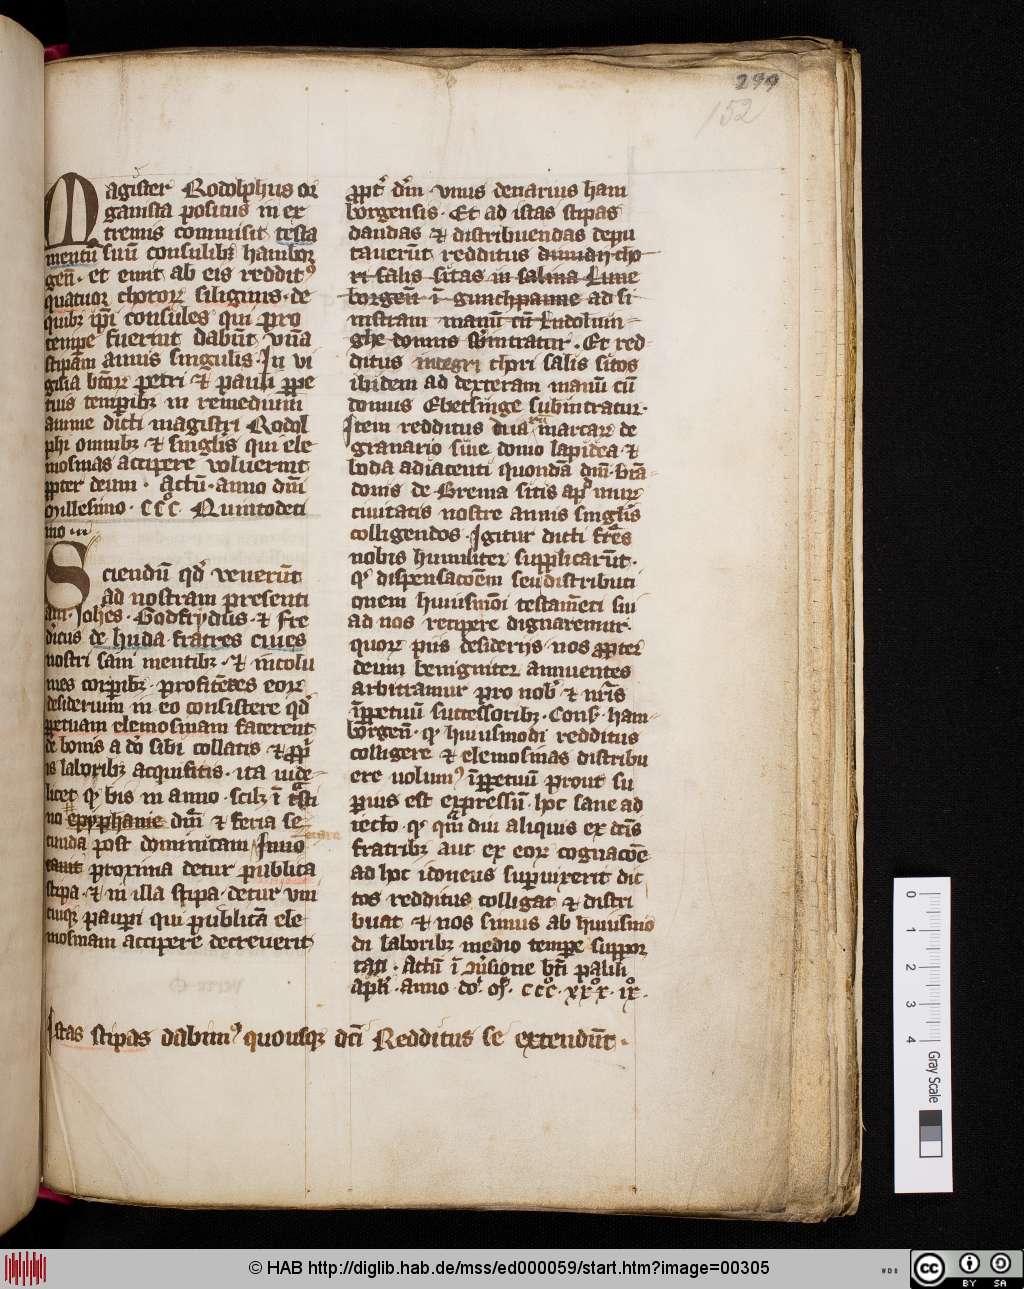 299
152
Magister Rodolphus or
ganista positus in ex
tremis commisit testa
mentū suū consulibꝫ hamborg
gen̄. et emit ab eis reddit⁹
quatuor chororꝫ siliginis. de
quibꝫ ip̄i consules qui pro
tempe fuerint dabūt vnā
stipam annis singulis. In vi
gilia btōrꝫ petri ⁊ pauli ꝑpe
tuis temporibꝫ in remedium
anime dicti magistri Rodol
phi omnibꝫ ⁊ singlis qui ele
mosinas accipere voluerint
ꝓpter deum. Actū. anno dn̄i
Millesimo. CCC° Quintodeci
mo.
Sciendū qd̓ venerūt
ad nostram presenti
am. Joh̄es. Godfrydus. ⁊ fre
d̓icus de huda fratres ciues
nostri sani mentibꝫ. ⁊ incolu
mes corporibꝫ. profitētes eorꝫ
desiderium in eo consistere qd̓
ꝑpetuam elemosinam facerent
de bonis a dō sibi collatis ⁊ ꝓpr̓
is laboribꝫ acquisitis. ita uide
licet ꝙ bis in anno. scilꝫ ī c̓sti
no epyphanie dn̄i ⁊ feria se
cunda post dominicam Inuo
cauit proxima detur publica
stipa. ⁊ in illa stipa detur vni
cuiqꝫ pauperi qui publicā ele
mosinam accipere decreuerit
ꝓpt̓ dm̄ vnus denarius ham
borgensis. Et ad istas stipas
dandas ⁊ distribuendas depu
tauerūt redditus dimidij cho
ri salis sitas in salina Lune
borgen̄ ī gunchpanne ad si
nistram manū cū Ludolum
ghe domus sb̓intratur. Et red
ditus integri chori salis sitos
ibidem ad dexteram manū cū
domus Ebetsinge subintratur.
Item redditus duarꝫ marcarꝫ de
granario siue domo lapidea ⁊
boda adiacenti quondā dn̄i. bra
donis de Brema sitis apd̓ murꝫ
ciuitatis nostre annis singlis
colligendos. Igitur dicti fr̄es
nobis humiliter supplicarūt.
ꝙ dispensacōem seu distributi
onem huiusmōi testamēti sui
ad nos recipere dignaremur.
quorꝫ piis desiderijs nos ꝓpter
deum benigniter annuentes
arbitramur pro nob̓ ⁊ nr̄is
īꝑpetuū successoribꝫ. Cons̓. ham
borgen̄. ꝙ huiusmodi redditus
colligere ⁊ elemosinas distribu
ere uolum⁹ īꝑpetuū prout su
perius est expressū. hoc sane ad
iecto. ꝙ qm̄ diu aliquis ex dc̄is
fratribꝫ aut ex eorꝫ cognacōe
ad hoc idoneus superuixerit dic
tos redditus colligat ⁊ distri
buat ⁊ nos simus ab huiusmo
di laboribꝫ medio tempe suppor
tati. Actū ī ꝯuersione bt̄i pauli
apl̄i. anno do̓. m̊. ccc̊. xx̊x. ix̊.
Istas stipas dabim⁹ quousqꝫ dc̄i Redditus se extendūt.
0 1 2 3 4
Gray Scale
© HAB http://diglib.hab.de/mss/ed000059/start.htm?image=00305
WDB
cc
BY SA